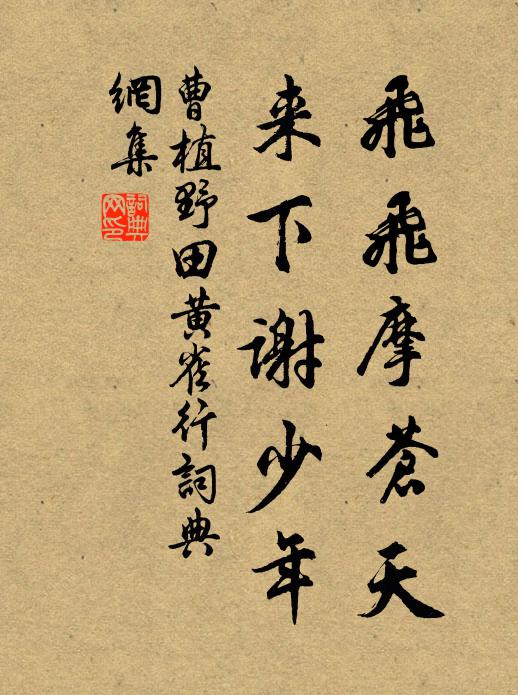 飛飛摩蒼天
来下謝少年
曹植野田黄雀行詞典
網集
詞典
网印